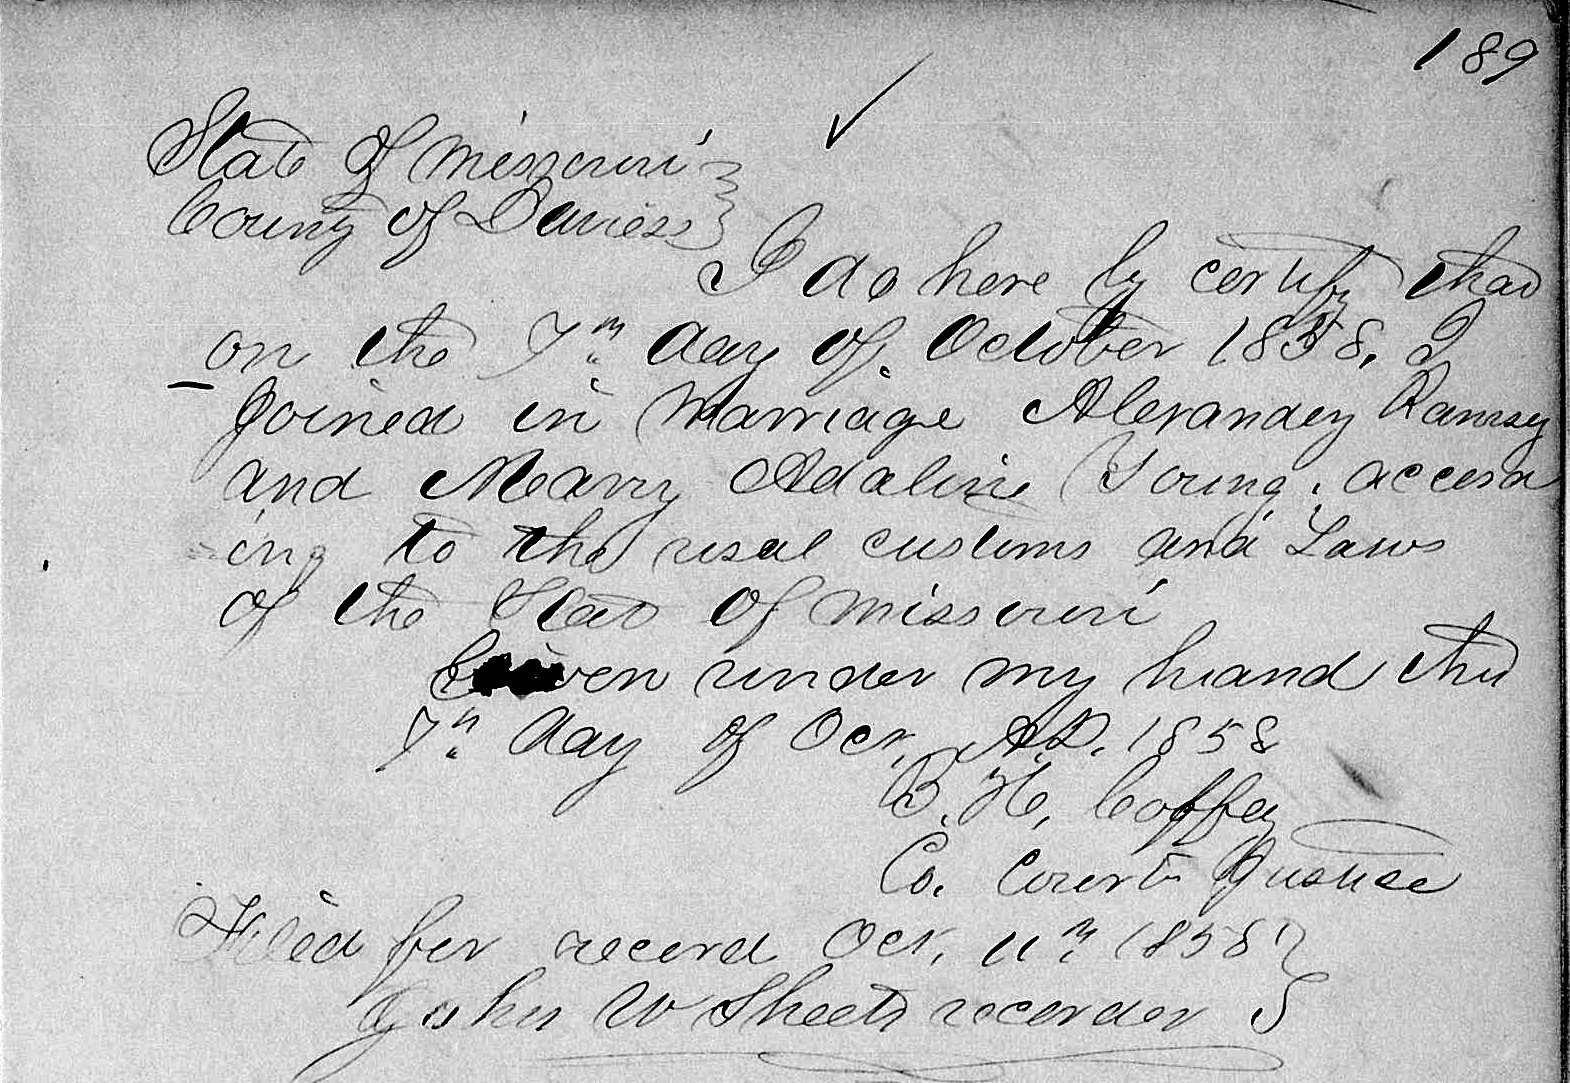 189
State of Missouri
County of Daviess
I do here by certify that
on the 7th day of October 1858, I
Joined in Marriage Alexander Ramsey
and Marry Adaline Young, accord
ing to the usal customs and Laws
of the State of Missouri
Given under my hand this
7th day of Oct, A.D. 1858
B. H. Coffey
Co. Court Justice
Filed for record Oct, 11th 1858
John W Sheets recorder